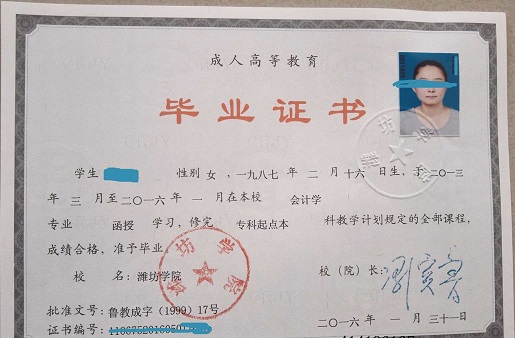 成人高等教育
毕业证书
学生 性别 女 ，一九八七年 二 月 十六 日生，于 二〇一三
年 三 月至二〇一六年 一 月在本校 会计学
专业 函授 学习，修完 专科起点本 科教学计划规定的全部课程，
成绩合格，准予毕业。
校 名：潍坊学院 校（院）长：
批准文号：鲁教成字（1999）17号
证书编号： 二〇一六年 一 月 三十一日